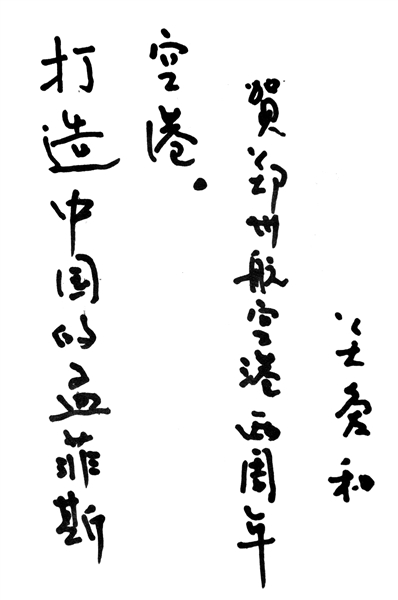 打造中国的孟菲斯
空港.
賀郑州航空港两周年
关爱和